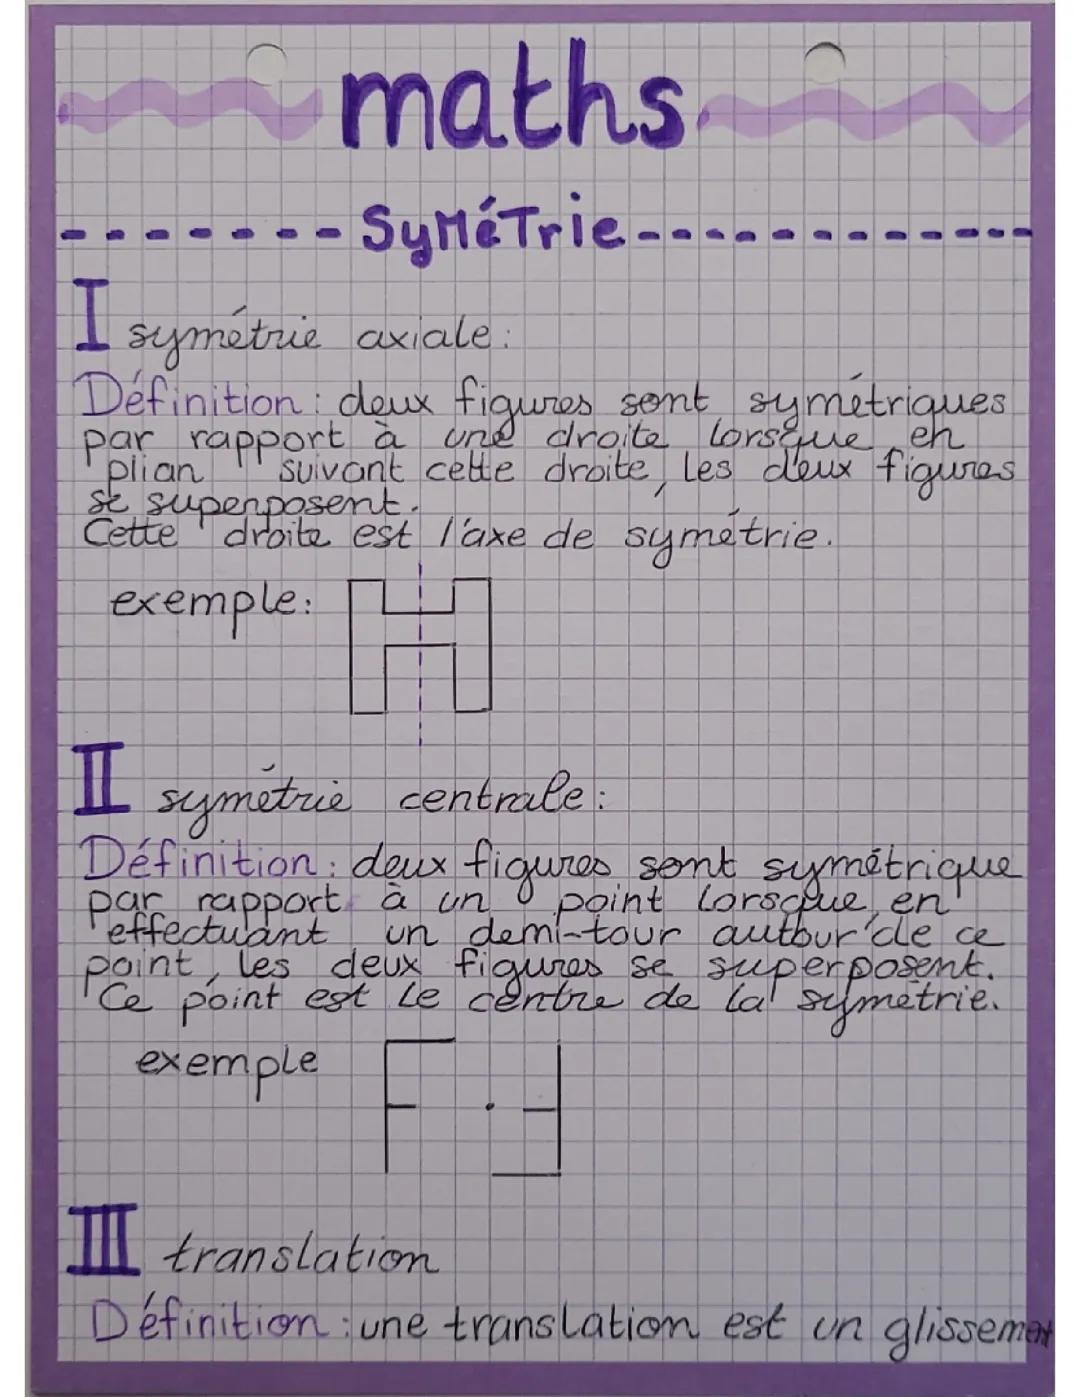 maths
SyMéTrie
I symétrie axiale :
Définition : deux figures sont symétriques
par rapport à une droite lorsque, en
plian suivant cette droite, les deux figures
se superposent.
Cette droite est l'axe de symétrie.
exemple :
II symétrie centrale :
Définition : deux figures sont symétrique
par rapport à un point lorsque, en
effectuant un demi-tour autour de ce
point, les deux figures se superposent.
Ce point est le centre de la symétrie.
exemple
III translation
Définition : une translation est un glissement